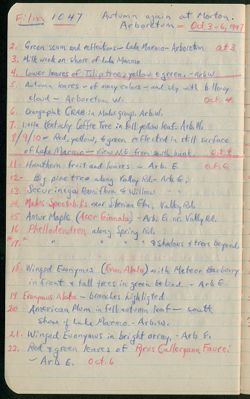 Film 1047 Autumn again at Morton.
Arboretum - Oct 3-6, 1947
2. Green scum and reflections - Lake Marmo - Arboretum Oct 3
3. Milk weed on shore of Lake Marmo
4. Lower leaves of Tulip tree, yellow & green. - Arb W.
Autumn leaves - of many colors - and sky with billowy
cloud - Arboretum W. Oct. 4
6. Deep-pink CRAB in Malus group. Arb W.
7. Little Kentucky Coffee Tree in full yellow leaf. Arb. W.
8/9/10 - Red, yellow, & green reflected in still surface
of Lake Marmo
11. Hawthorn fruit and leaves - Arb E. Oct. 6
12. Big pine tree along Valley Rd - Arb E.
13. Willow
14. Malus Spectabilis near Rd, Valley Rd.
15. Amur Maple (Acer Ginnala) - Arb E. on Valley Rd.
16. Phellodendron along Spring Rd.
17. " " " & shadows & trees beyond.
18. Winged Euonymus (Euon. Alata) with Barberry
in front & tall trees in green behind - Arb E.
19. Euonymus Alata - branches highlighted
20. American Plum in full autumn leaf - south
shore of Lake Marmo - Arb W.
21. Winged Euonymus in bright array, - Arb E.
22. Red & green leaves of Pyrus Calleryana
- Arb E. Oct. 6